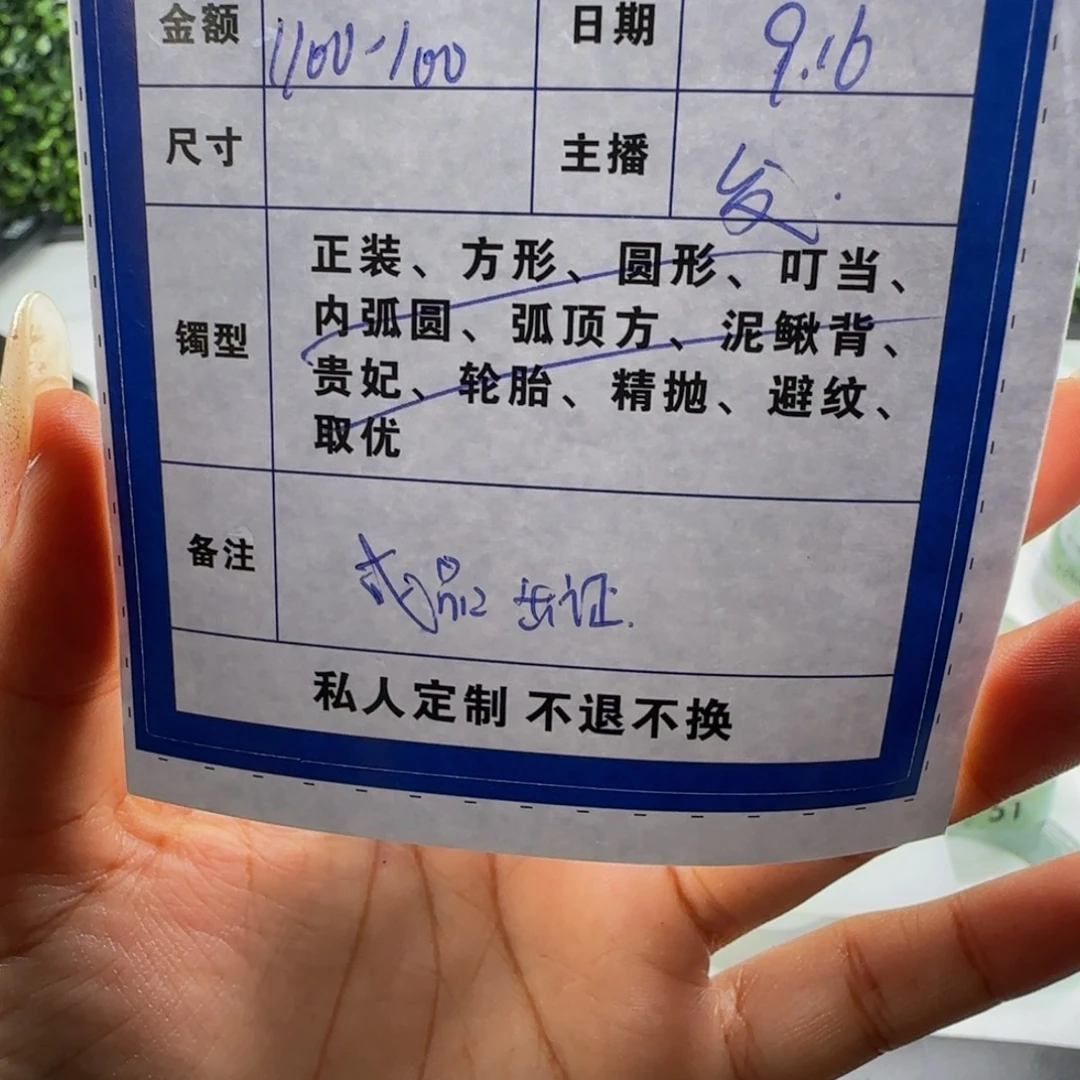 金额 1100-100 日期 9.16
尺寸 主播 发
正装、方形、圆形、叮当、
内弧圆、弧顶方、泥鳅背、
镯型
贵妃、轮胎、精抛、避纹、
取优
备注 成品 出证.
私人定制 不退不换
51